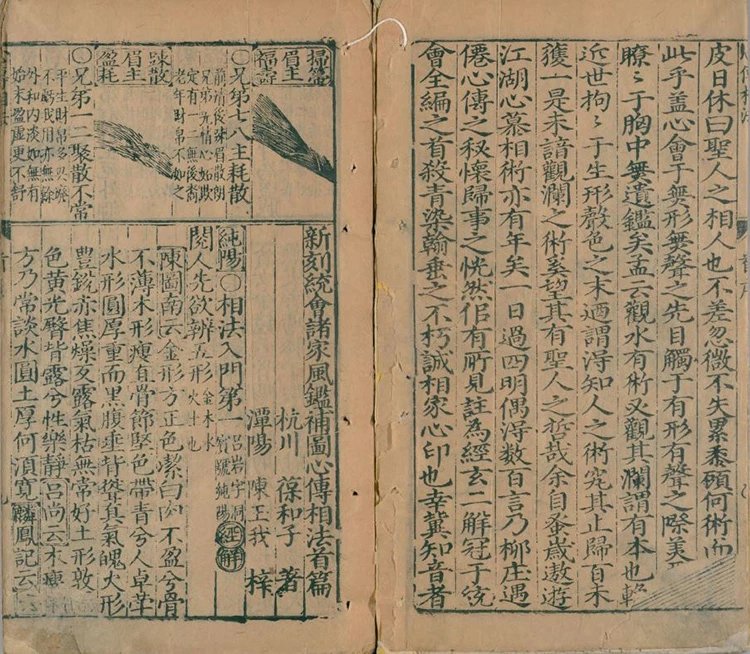 皮日休曰聖人之相人也不差忽微不失累黍顧何術而
此乎盖心會于無形無聲之先目觸于有形有聲之際美
瞭〻于胸中無遺鑑矣孟云觀水有術又觀其瀾謂有本也
近世拘〻于生形聲色之末迺謂得知人之術究其止歸百未
獲一是未諳觀瀾之術奚望其有聖人之哲哉余自蚤歲遨遊
江湖心慕相術亦有年矣一日過四明偶得数百言乃柳庄遇
僊心傳之秘懷歸事之恍然俻有所見註為經玄二解冠于統
會全編之首殺青染翰垂之不朽誠相家心印也幸冀知音者
新刻統會諸家風鑑補圖心傳相法首篇
杭川 葆和子 著
潭陽 陳王我 梓
純陽〇相法入門第一 呂岩字洞賓號純陽 經解
閱人先欲辨五形 金木水火土也
陳圖南云金形方正色潔白兮不盈兮骨
不薄木形瘦直骨節堅色帶青兮人卓犖
水形圓厚重而黑腹垂背聳真氣魄火形
豐銳赤焦燥反露氣枯無常好土形敦
色黄光臀背露兮性樂靜呂尚云木瘦
方乃常談水圓土厚何須寛麟鳳記云
掃箒
眉主
福壽
〇兄第七八主耗散
眉清後疎眉散朗
兄弟無情心如欺
定有一二無後裔
老年財帛不如之
疎散
眉主
盈耗
〇兄第一二聚散不常
平生財帛多興廢
不虧我用亦無餘
外和内淡如無有
始末盈虚更不舒